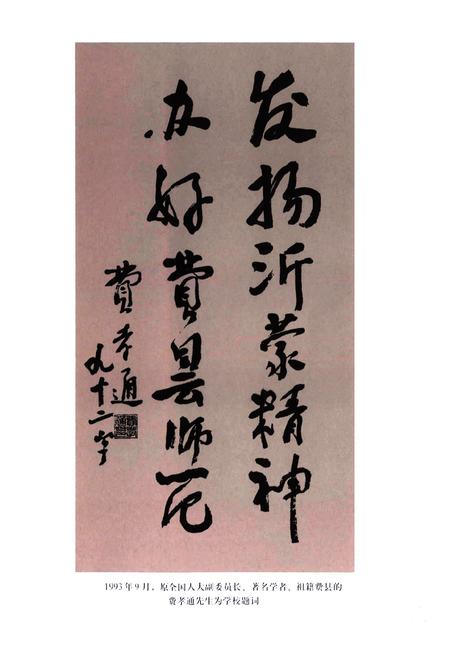 发扬沂蒙精神
办好费县师范
费孝通
九十二字
1993年9月，原全国人大副委员长、著名学者、祖籍费县的
费孝通先生为学校题词